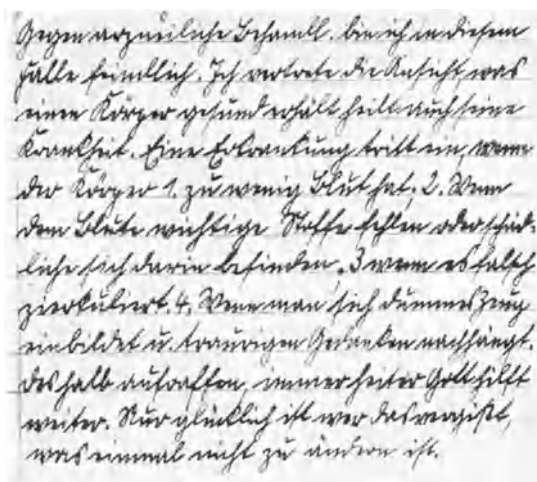 Gegen arzneiliche Behandl. bin ich in diesem
Falle feindlich. Ich vertrete die Ansicht, was
einen Körper gesund erhält heilt auch seine
Krankheit. Eine Erkrankung tritt ein, wenn
der Körper 1. zu wenig Blut hat; 2. Wenn
dem Blute wichtige Stoffe fehlen oder schäd-
liche sich darin befinden. 3 wenn es falsch
zierkuliert. 4. Wenn man sich dummes Zeug
einbildet u. traurigen Gedanken nachhängt.
Deshalb aufraffen, immer heiter Gott hilft
weiter. Nur glücklich ist wer das vergißt,
was einmal nicht zu ändern ist.